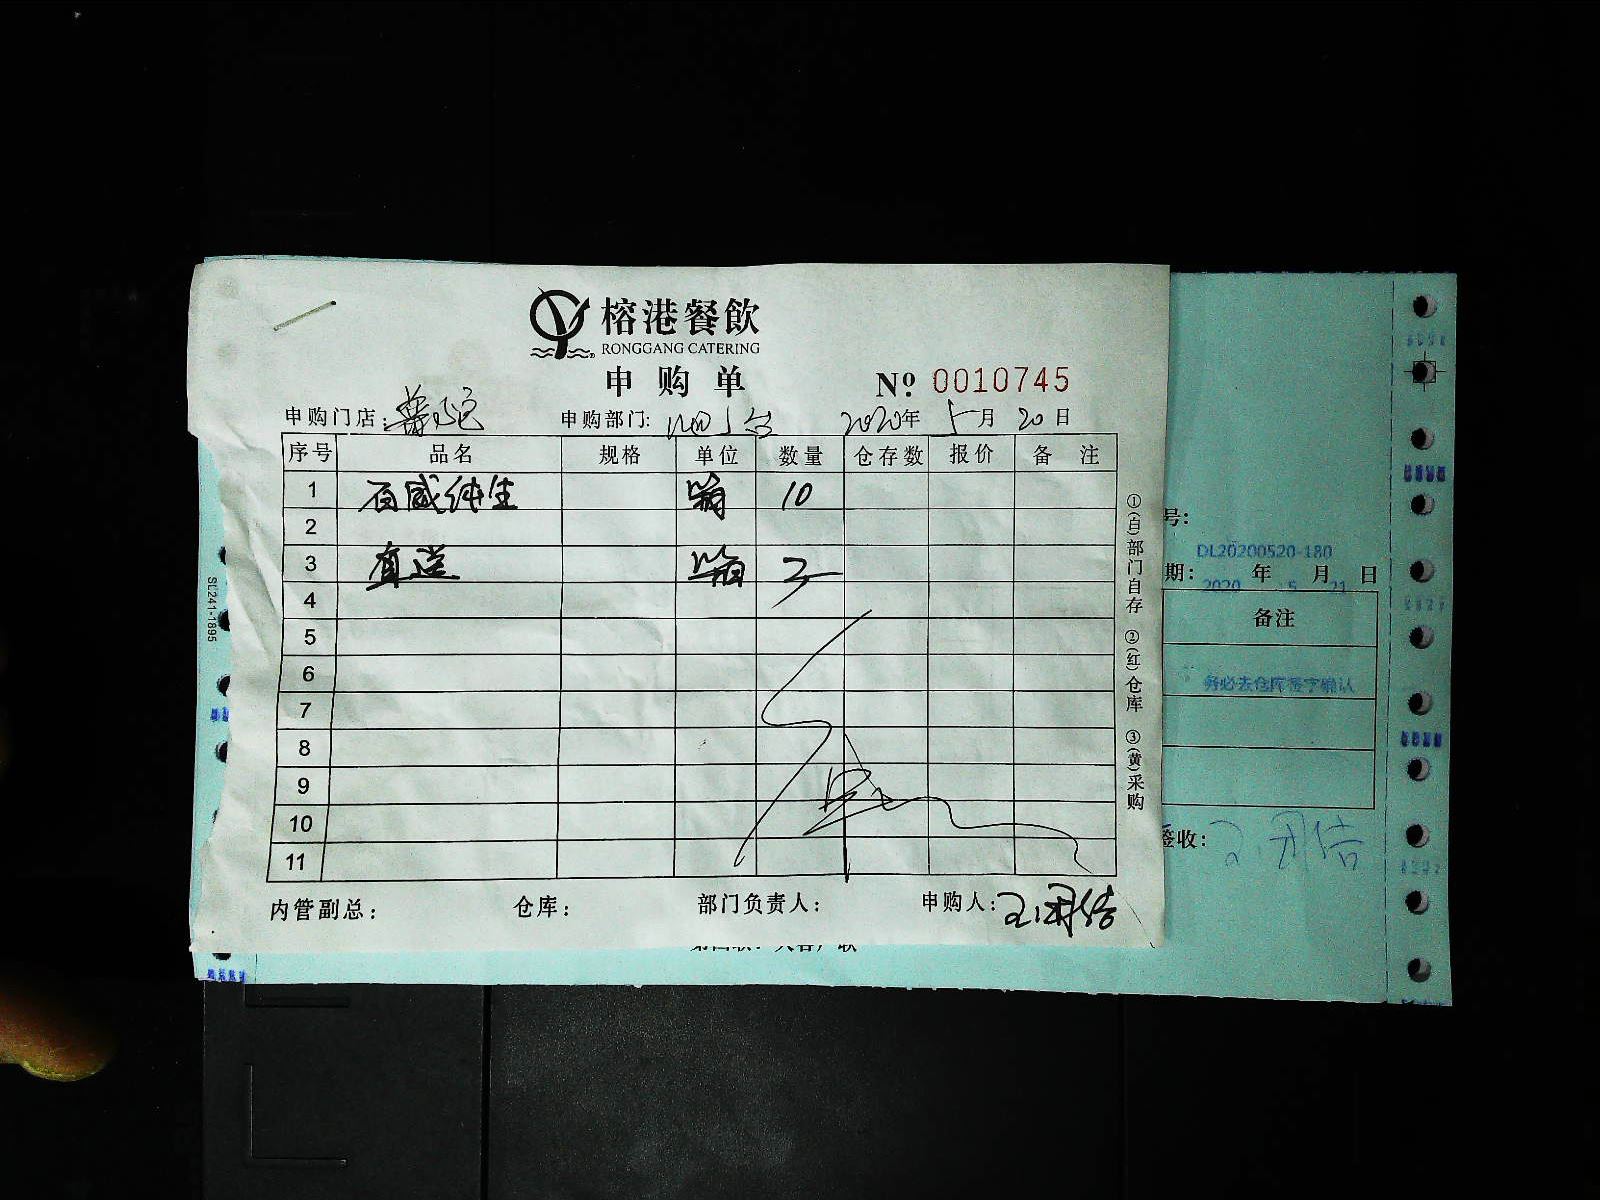 榕港餐飲
RONGGANG CATERING
申购单 № 0010745
申购门店: 申购部门: 2020年 5月 20日
序号 品名 规格 单位 数量 仓存数 报价 备注
1 百威纯生 箱 10
2
3 直送 箱
4
5
6
7
8
9
10
11
内管副总: 仓库: 部门负责人: 申购人:
①(白)部门自存 ②(红)仓库 ③(黄)采购
SL241-1895
号:
DL20200520-180
期: 2020 年 5 月 21 日
备注
务必去仓库签字确认
签收: